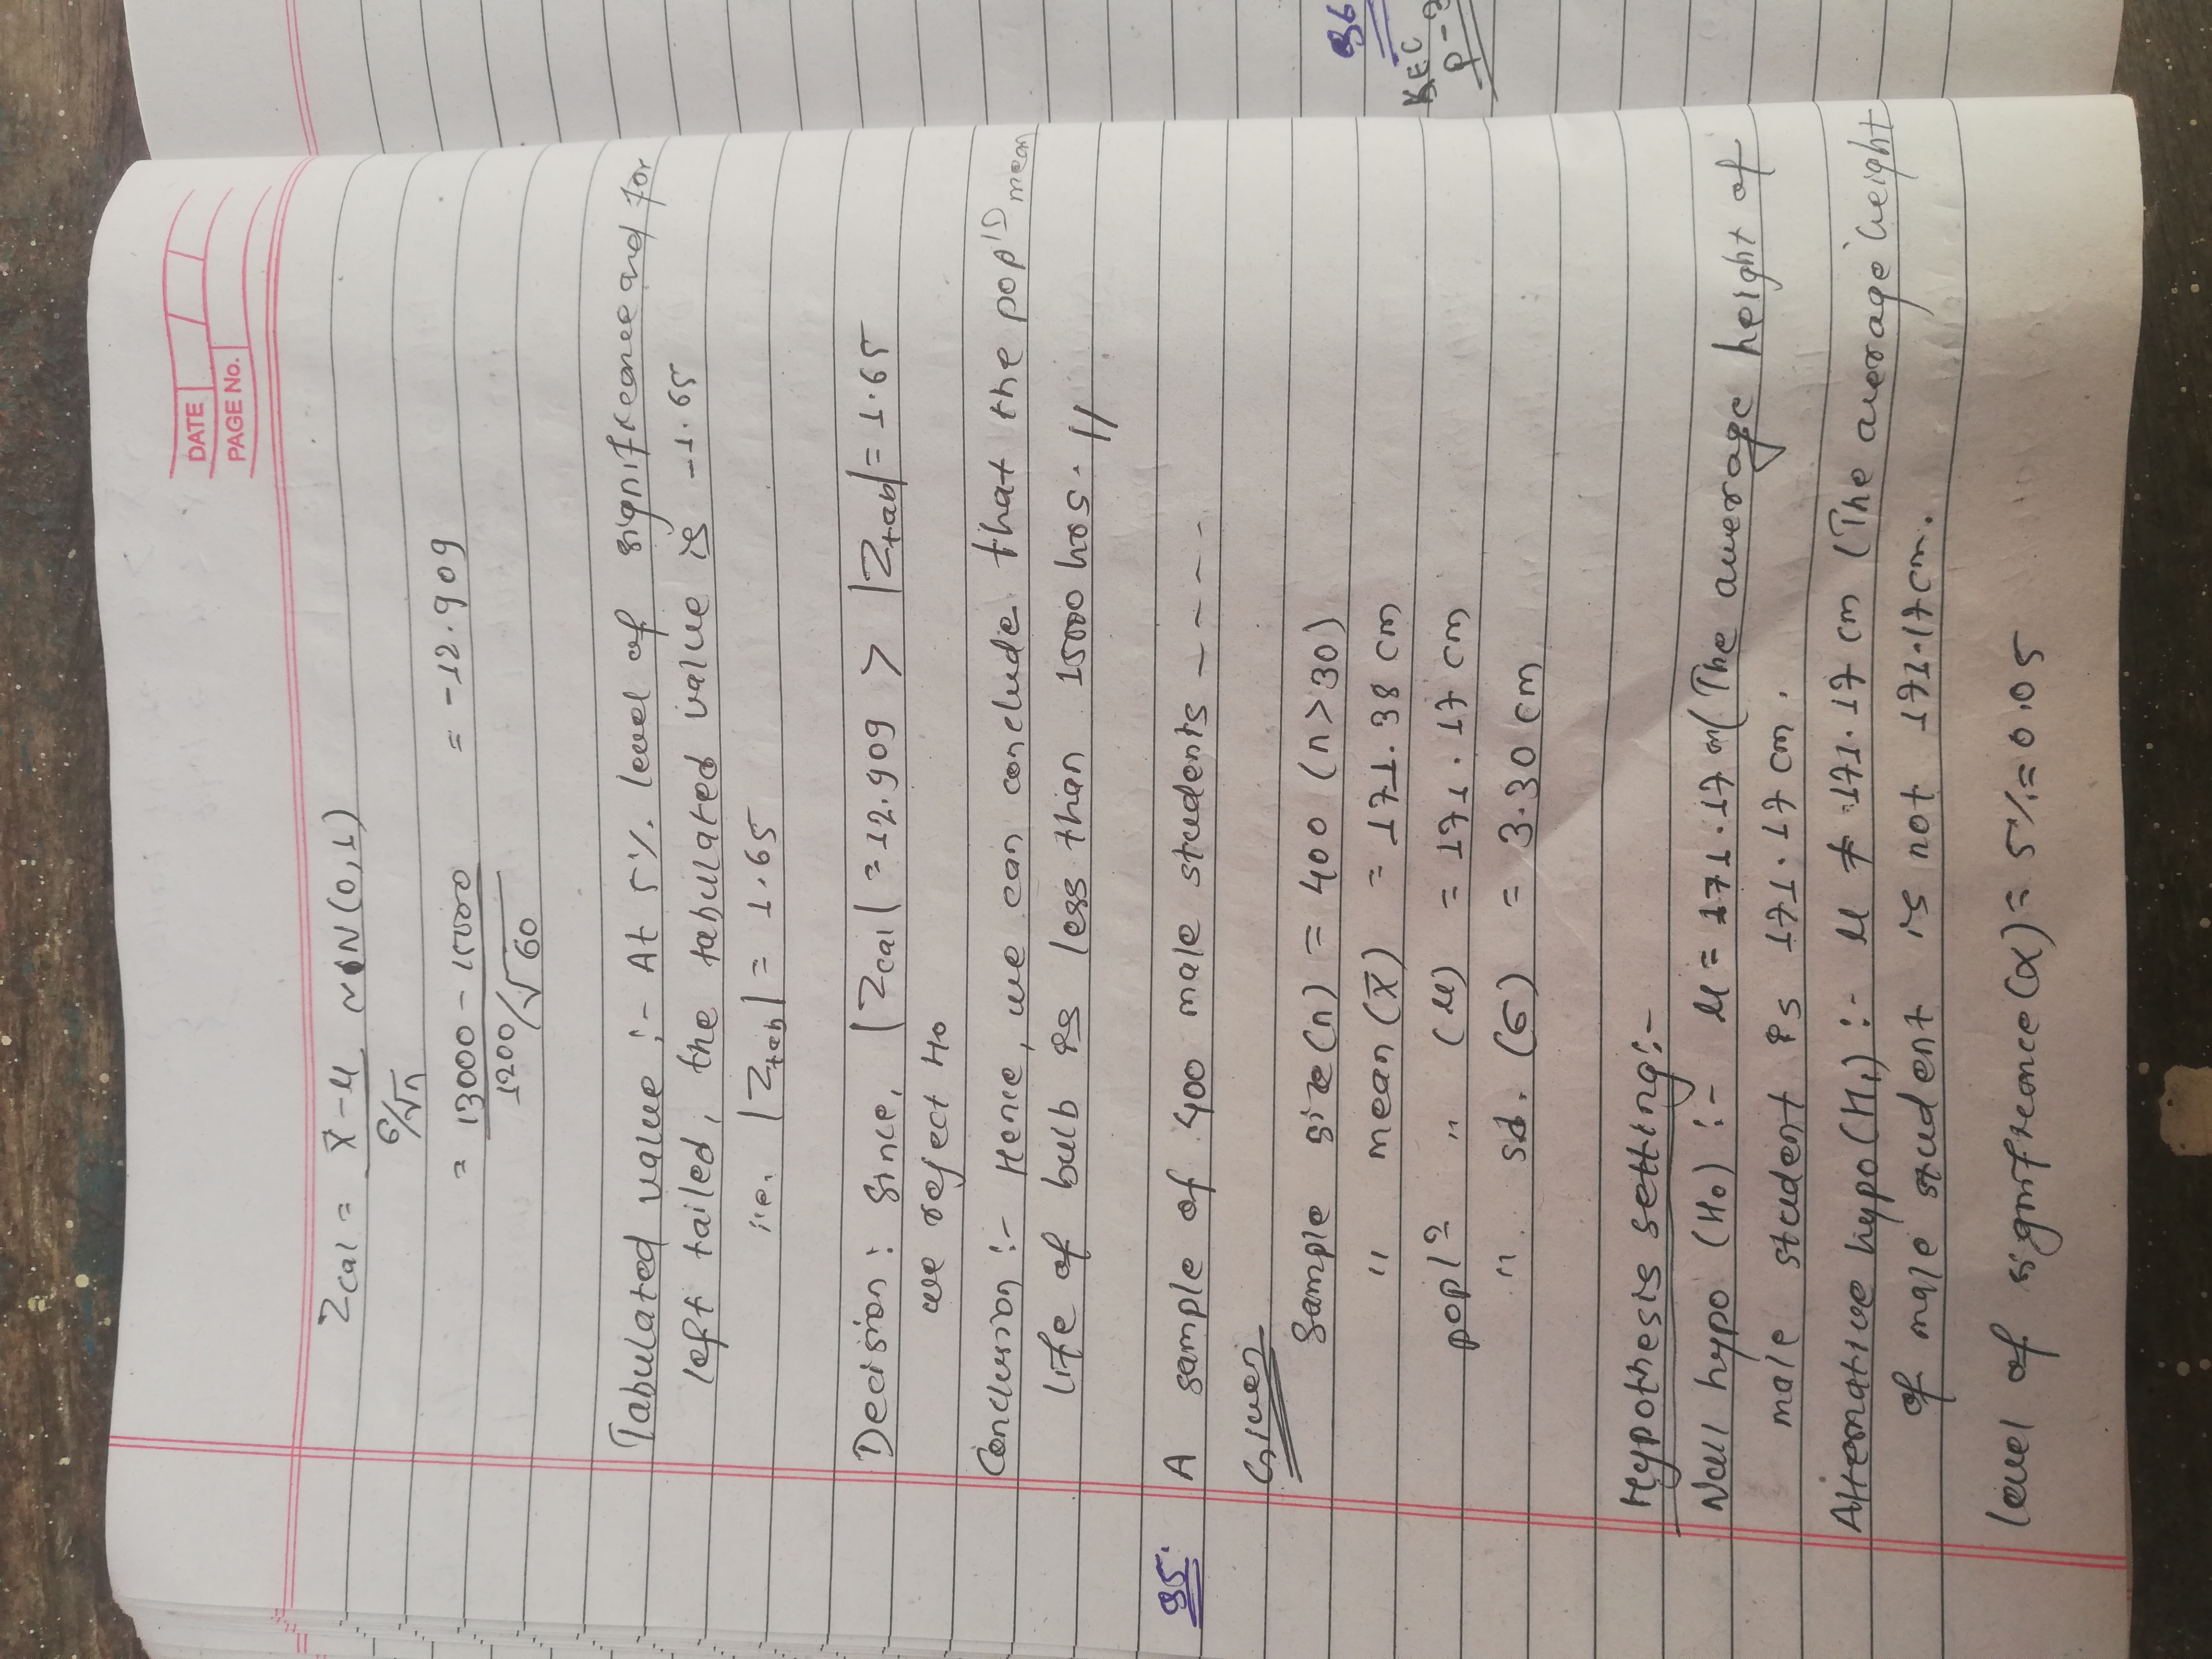 DATE
PAGE No.
Zcal = x̄ - μ ~ N(0,1)
σ/√n
= 13000 - 15000 = -12.909
1200/√60
Tabulated value :- At 5% level of significance and for
left tailed, the tabulated value is -1.65
i.e. |Ztab| = 1.65
Decision : Since, |Zcal| = 12.909 > |Ztab| = 1.65
we reject H₀
Conclusion :- Hence, we can conclude that the popⁿ mean
life of bulb is less than 15000 hrs. //
35. A sample of 400 male students ----
Given
Sample size (n) = 400 (n>30)
" mean (x̄) = 171.38 cm
poplⁿ " (μ) = 171.17 cm
" sd. (σ) = 3.30 cm
Hypothesis setting :-
Null hypo (H₀) :- μ = 171.17 cm (The average height of
male student is 171.17 cm.
Alternative hypo (H₁) :- μ ≠ 171.17 cm (The average height
of male student is not 171.17 cm.
level of significance (α) = 5% = 0.05
36
KEC